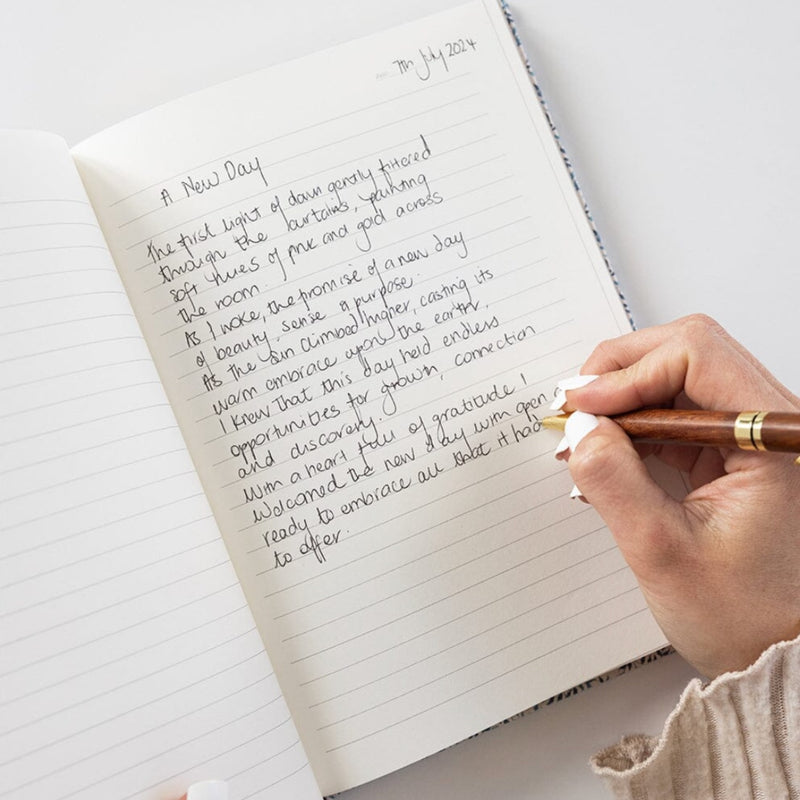 7th July 2024
A New Day
The first light of dawn gently filtered
through the curtains, painting
soft hues of pink and gold across
the room.
As I woke, the promise of a new day
of beauty, sense of purpose.
As the sun climbed higher, casting its
warm embrace upon the earth,
I knew that this day held endless
opportunities for growth, connection
and discovery.
With a heart full of gratitude I
welcomed the new day with open
ready to embrace all that it had
to offer.